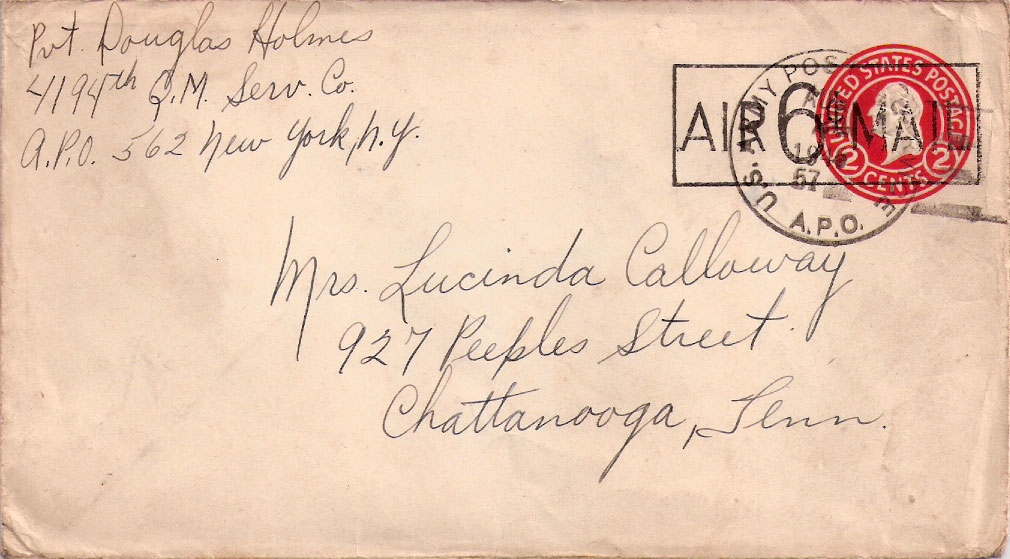 Pvt. Douglas Holmes
4194th Q.M. Serv. Co.
A.P.O. 562 New York, N.Y.
AIR 6¢ MAIL
U.S. ARMY POSTAL
A.P.O.
57
UNITED STATES POSTAGE
2 CENTS 2
Mrs. Lucinda Calloway
927 Peeples Street
Chattanooga, Tenn.